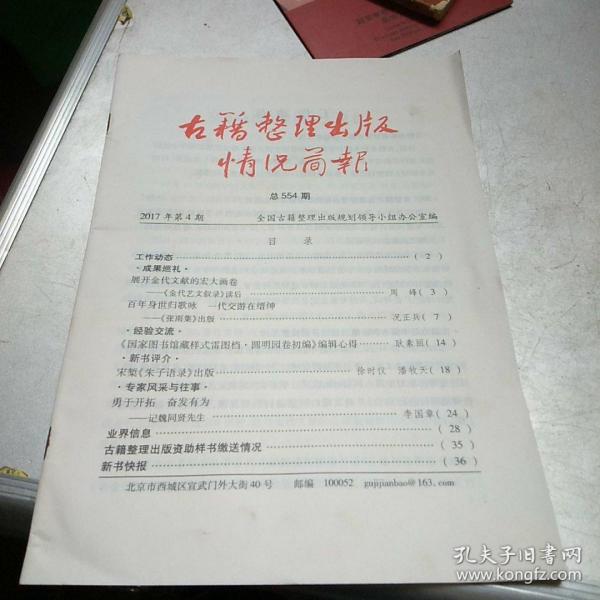 古籍整理出版
情况简报
总554期
2017年第4期 全国古籍整理出版规划领导小组办公室编
目 录
工作动态 (2)
·成果巡礼·
展开金代文献的宏大画卷
——《金代艺文叙录》读后 周 峰(3)
百年身世归歌咏 一代交游在缙绅
——《张雨集》出版 况正兵(7)
·经验交流·
《国家图书馆藏样式雷图档·圆明园卷初编》编辑心得 耿素丽(14)
·新书评介·
宋椠《朱子语录》出版 徐时仪 潘牧天(18)
·专家风采与往事·
勇于开拓 奋发有为
——记魏同贤先生 李国章(24)
业界信息 (28)
古籍整理出版资助样书缴送情况 (35)
新书快报 (36)
北京市西城区宣武门外大街40号 邮编 100052 gujijianbao@163.com
孔夫子旧书网
www.kongfz.com